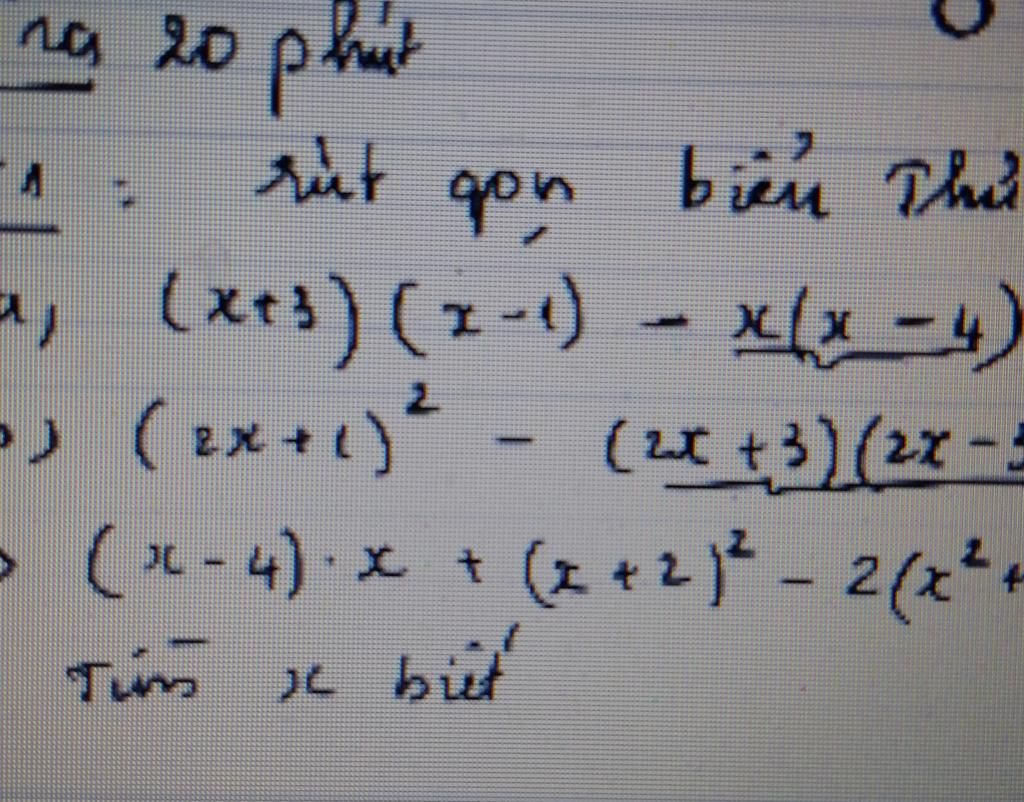 ng 20 phút
1 : rút gọn biểu Thứ
a, (x+3)(x-1) - x(x-4)
b) (2x+1)² - (2x+3)(2x-3
(x-4).x + (x+2)² - 2(x²+
Tìm x biết